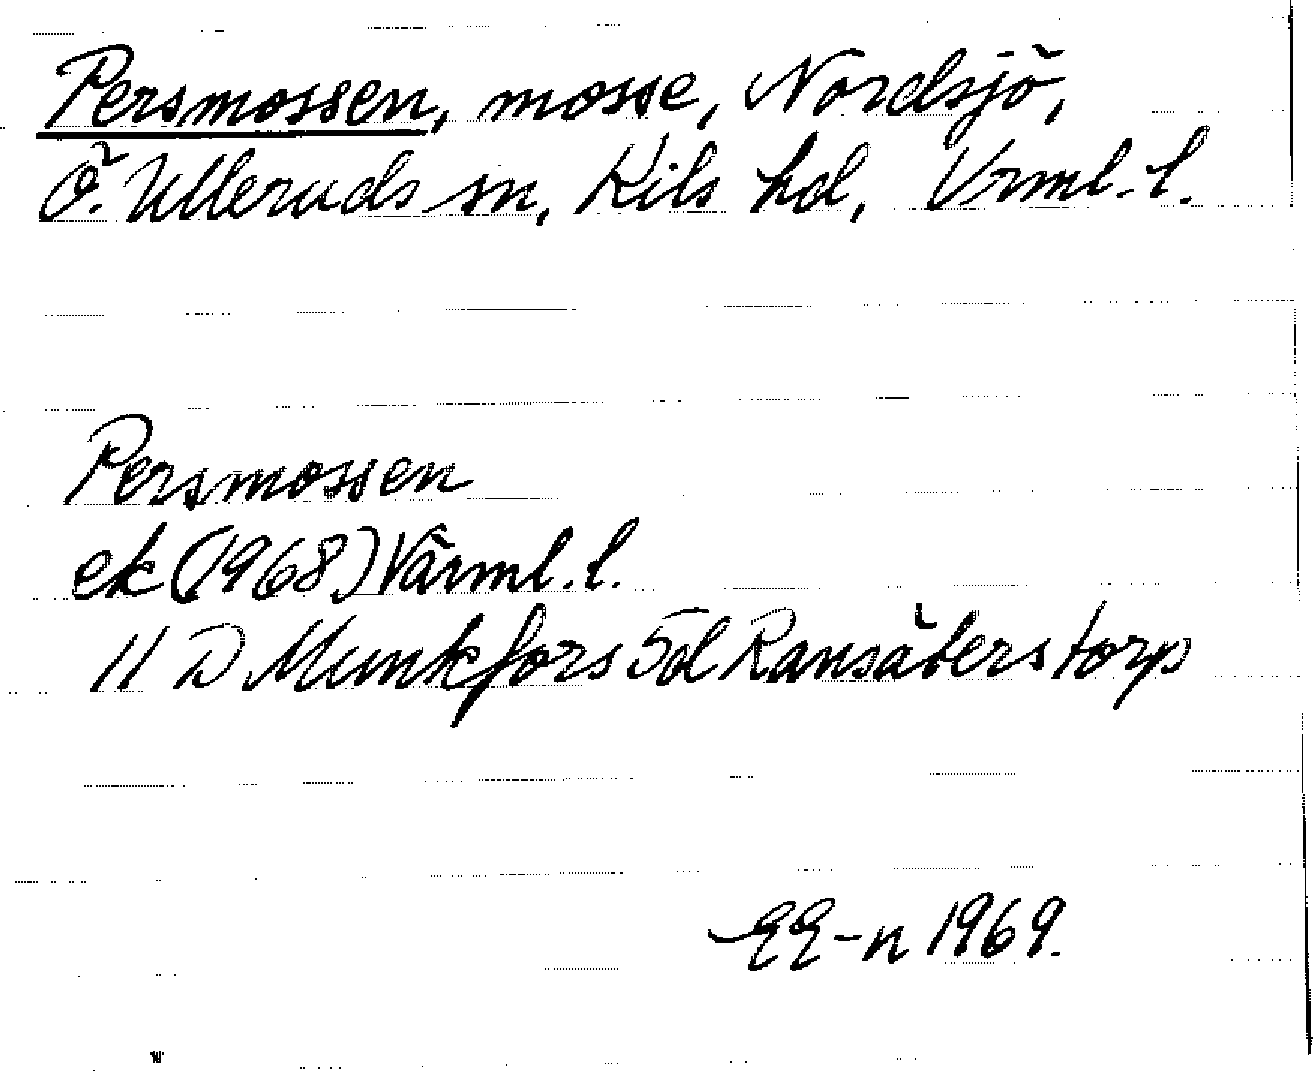 Persmossen, mosse, Nordsjö,
Ö. Ulleruds sn, Kils hd, Vrml. l.
Persmossen
ek (1968) Värml. l.
11 D Munkfors 5d Ransäterstorp
EE-n 1969.